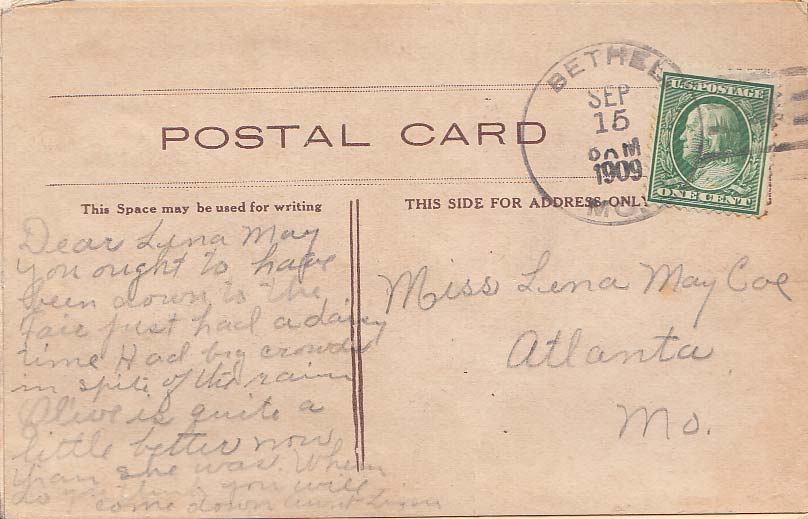 POSTAL CARD
BETHEL
SEP
15
8 AM
1909
MO.
U.S. POSTAGE
ONE CENT
This Space may be used for writing
THIS SIDE FOR ADDRESS ONLY
Dear Lena May
you ought to have
been down to the
Fair just had a daisy
time Had big crowds
in spite of the rain
Olive is quite a
little better now
than she was. When
do you think you will
come down aunt
Miss Lena May Coe
Atlanta
Mo.